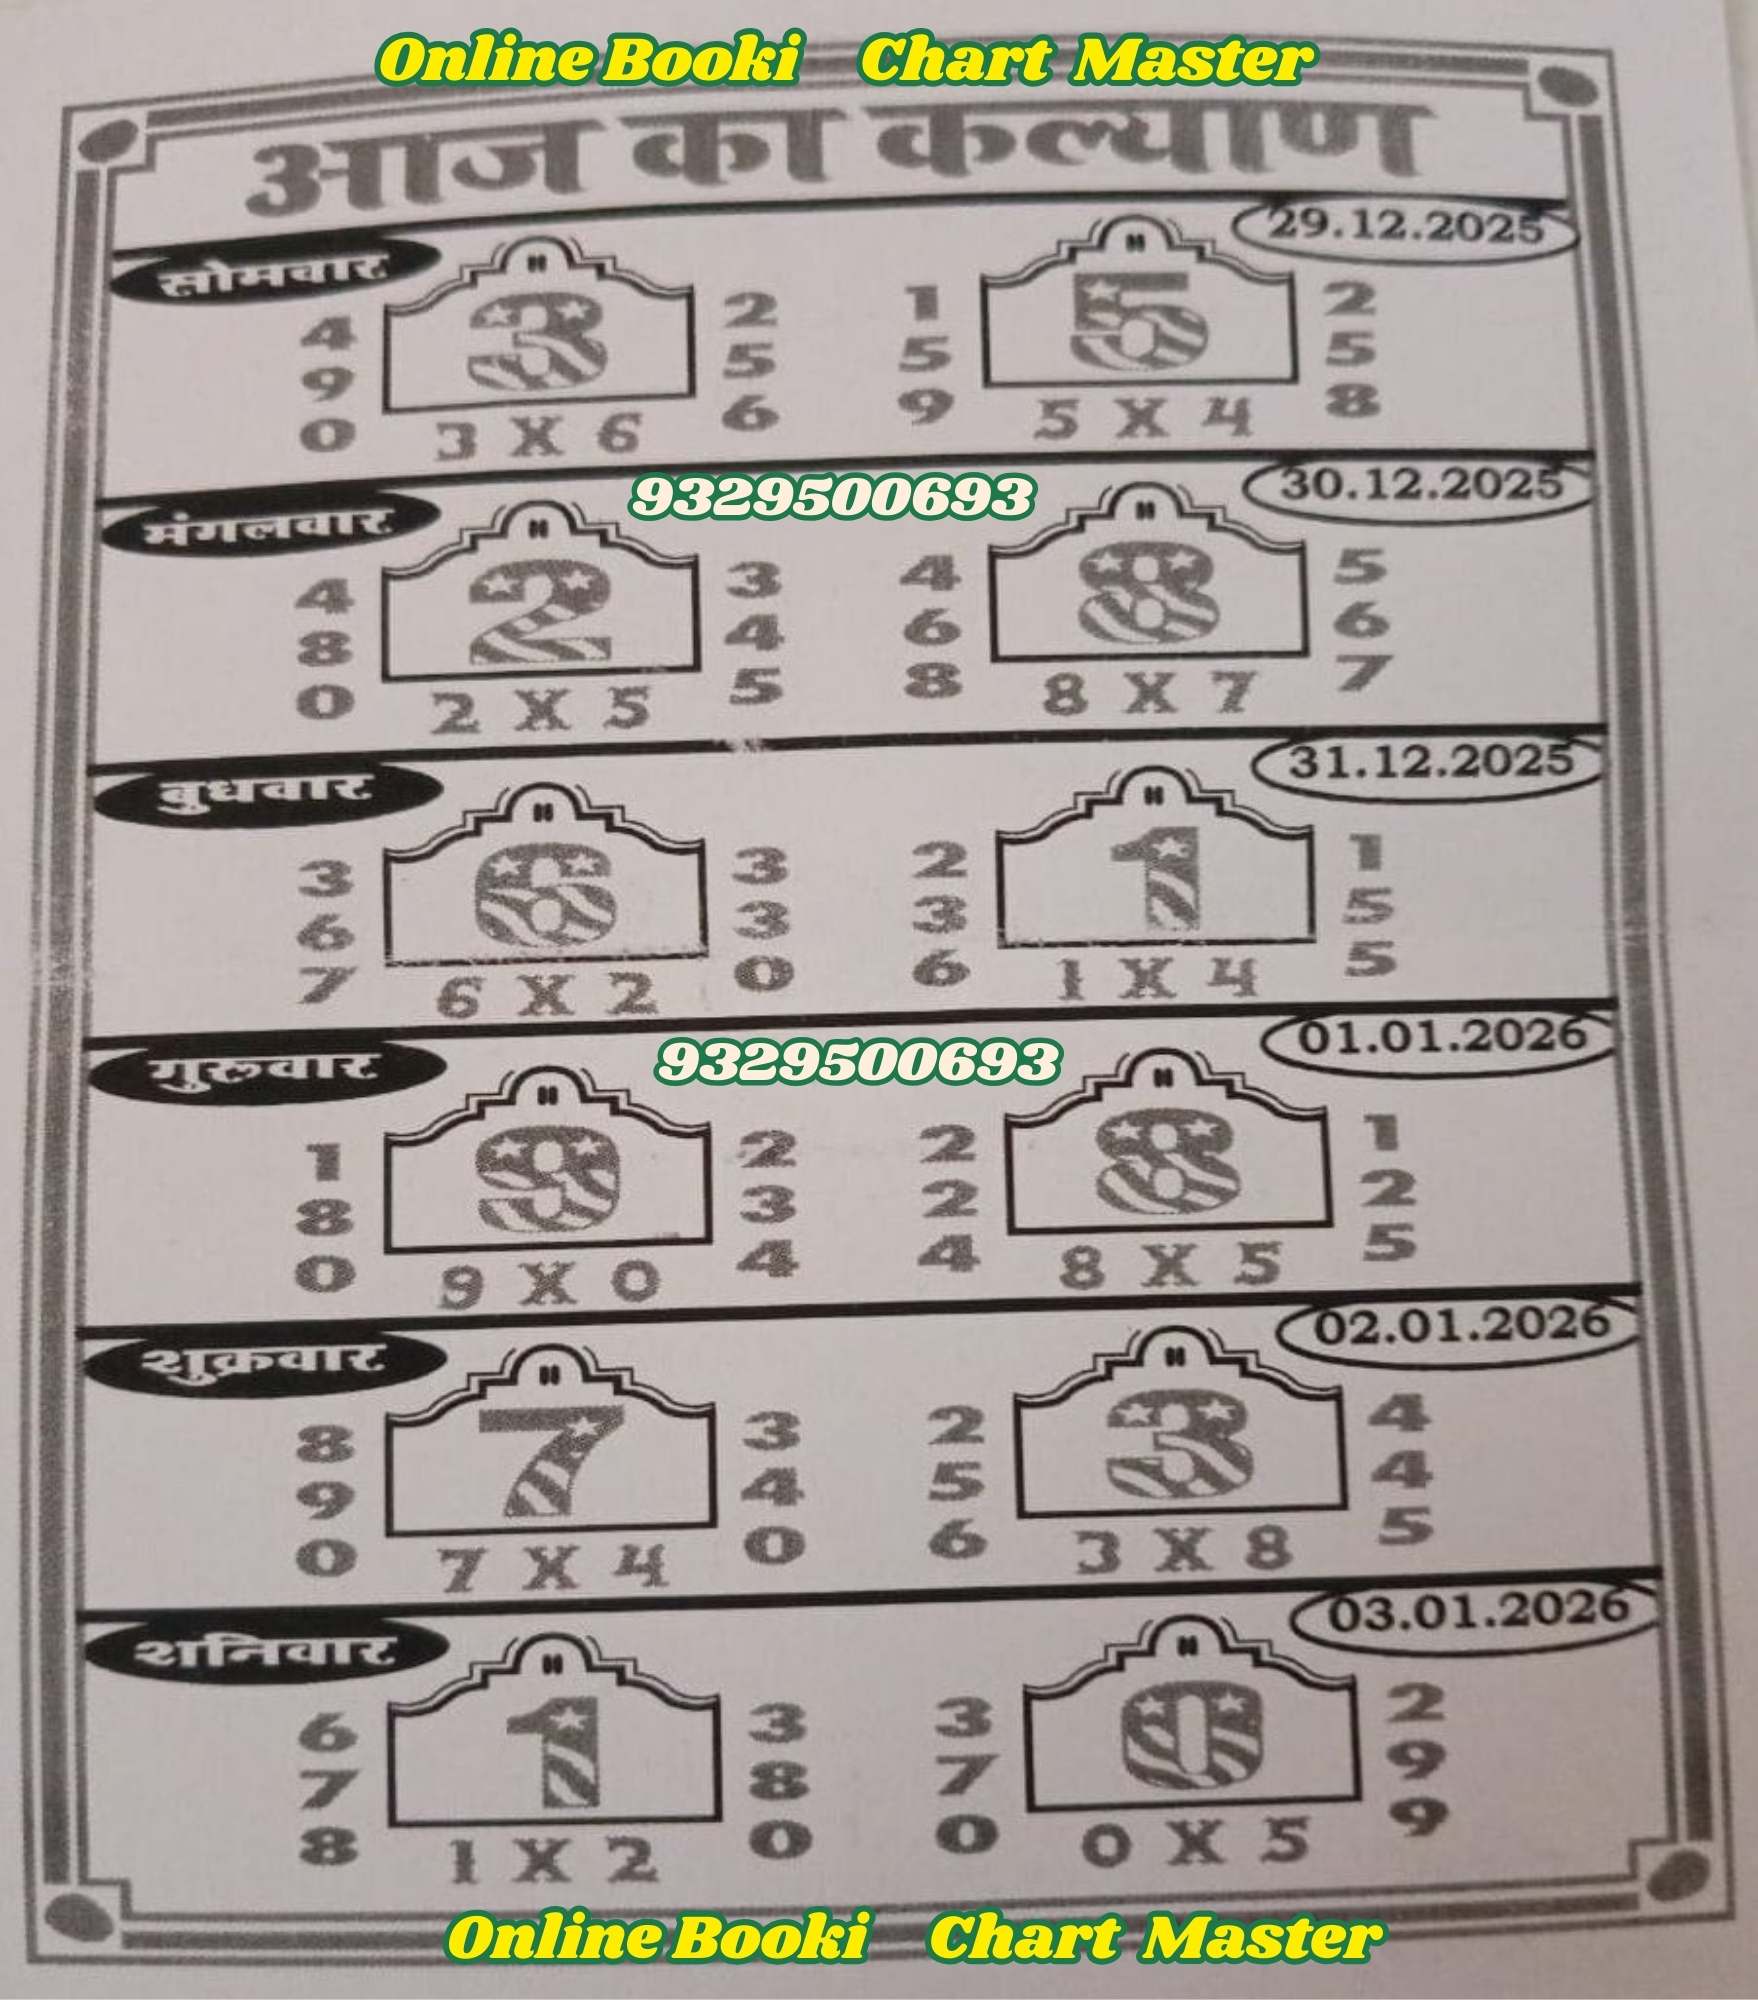 Online Booki Chart Master
आज का कल्याण
सोमवार 29.12.2025
4 3 2 1 5 2
9 5 5 5
0 3 X 6 6 9 5 X 4 8
9329500693
मंगलवार 30.12.2025
4 2 3 4 8 5
8 4 6 6
0 2 X 5 5 8 8 X 7 7
बुधवार 31.12.2025
3 6 3 2 1 1
6 3 3 5
7 6 X 2 0 6 1 X 4 5
9329500693
गुरूवार 01.01.2026
1 9 2 2 8 1
8 3 2 2
0 9 X 0 4 4 8 X 5 5
शुक्रवार 02.01.2026
8 7 3 2 3 4
9 4 5 4
0 7 X 4 0 6 3 X 8 5
शनिवार 03.01.2026
6 1 3 3 0 2
7 8 7 9
8 1 X 2 0 0 0 X 5 9
Online Booki Chart Master